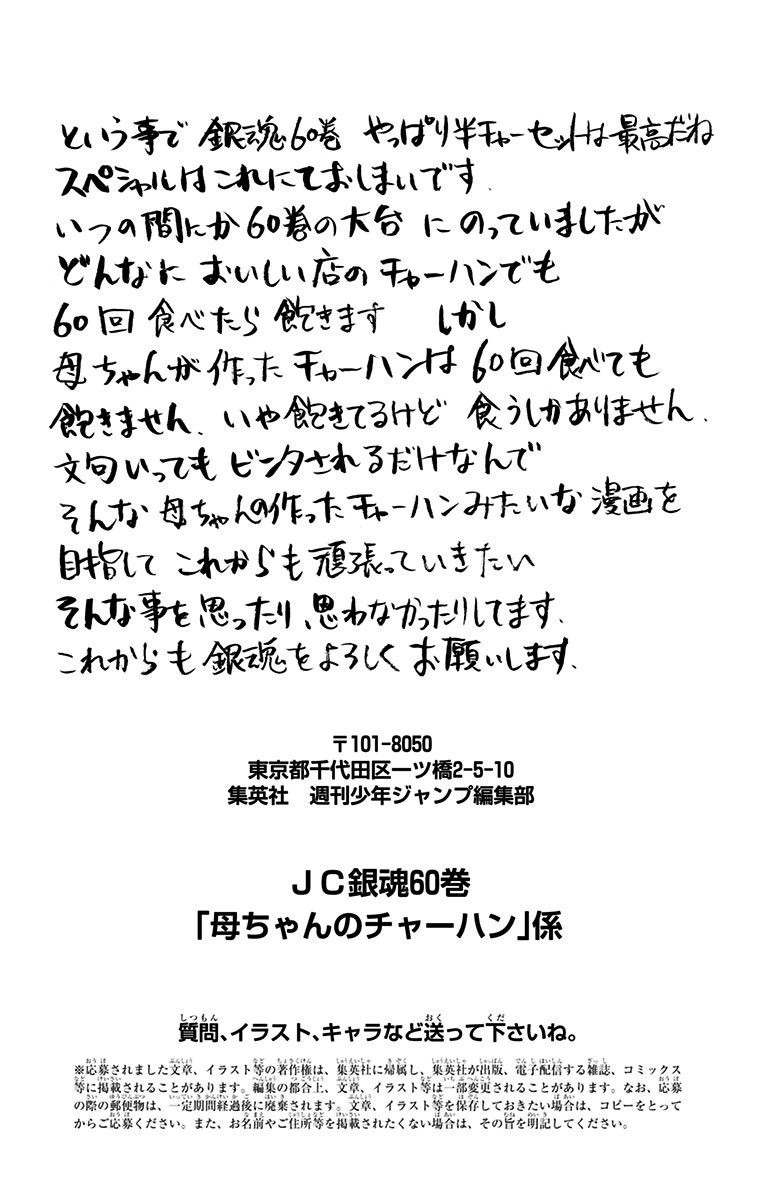 という事で 銀魂60巻 やっぱり半チャーセットは最高だね
スペシャルはこれにておしまいです.
いつの間にか60巻の大台 にのっていましたが
どんなに おいしい店の チャーハンでも
60回 食べたら 飽きます しかし
母ちゃんが作ったチャーハンは60回食べても
飽きません、いや飽きてるけど 食うしかありません.
文句いっても ビンタされるだけなんで
そんな 母ちゃんの作ったチャーハンみたいな 漫画を
目指して これからも 頑張っていきたい
そんな事を思ったり、思わなかったりしてます、
これからも 銀魂をよろしく お願いします、
〒101-8050
東京都千代田区一ツ橋2-5-10
集英社 週刊少年ジャンプ編集部
JC銀魂60巻
「母ちゃんのチャーハン」係
質問、イラスト、キャラなど送って下さいね。
※応募されました文章、イラスト等の著作権は、集英社に帰属し、集英社が出版、電子配信する雑誌、コミックス
等に掲載されることがあります。編集の都合上、文章、イラスト等は一部変更されることがあります。なお、応募
の際の郵便物は、一定期間経過後に廃棄されます。文章、イラスト等を保存しておきたい場合は、コピーをとって
からご応募ください。また、お名前やご住所等を掲載されたくない場合は、その旨を明記してください。